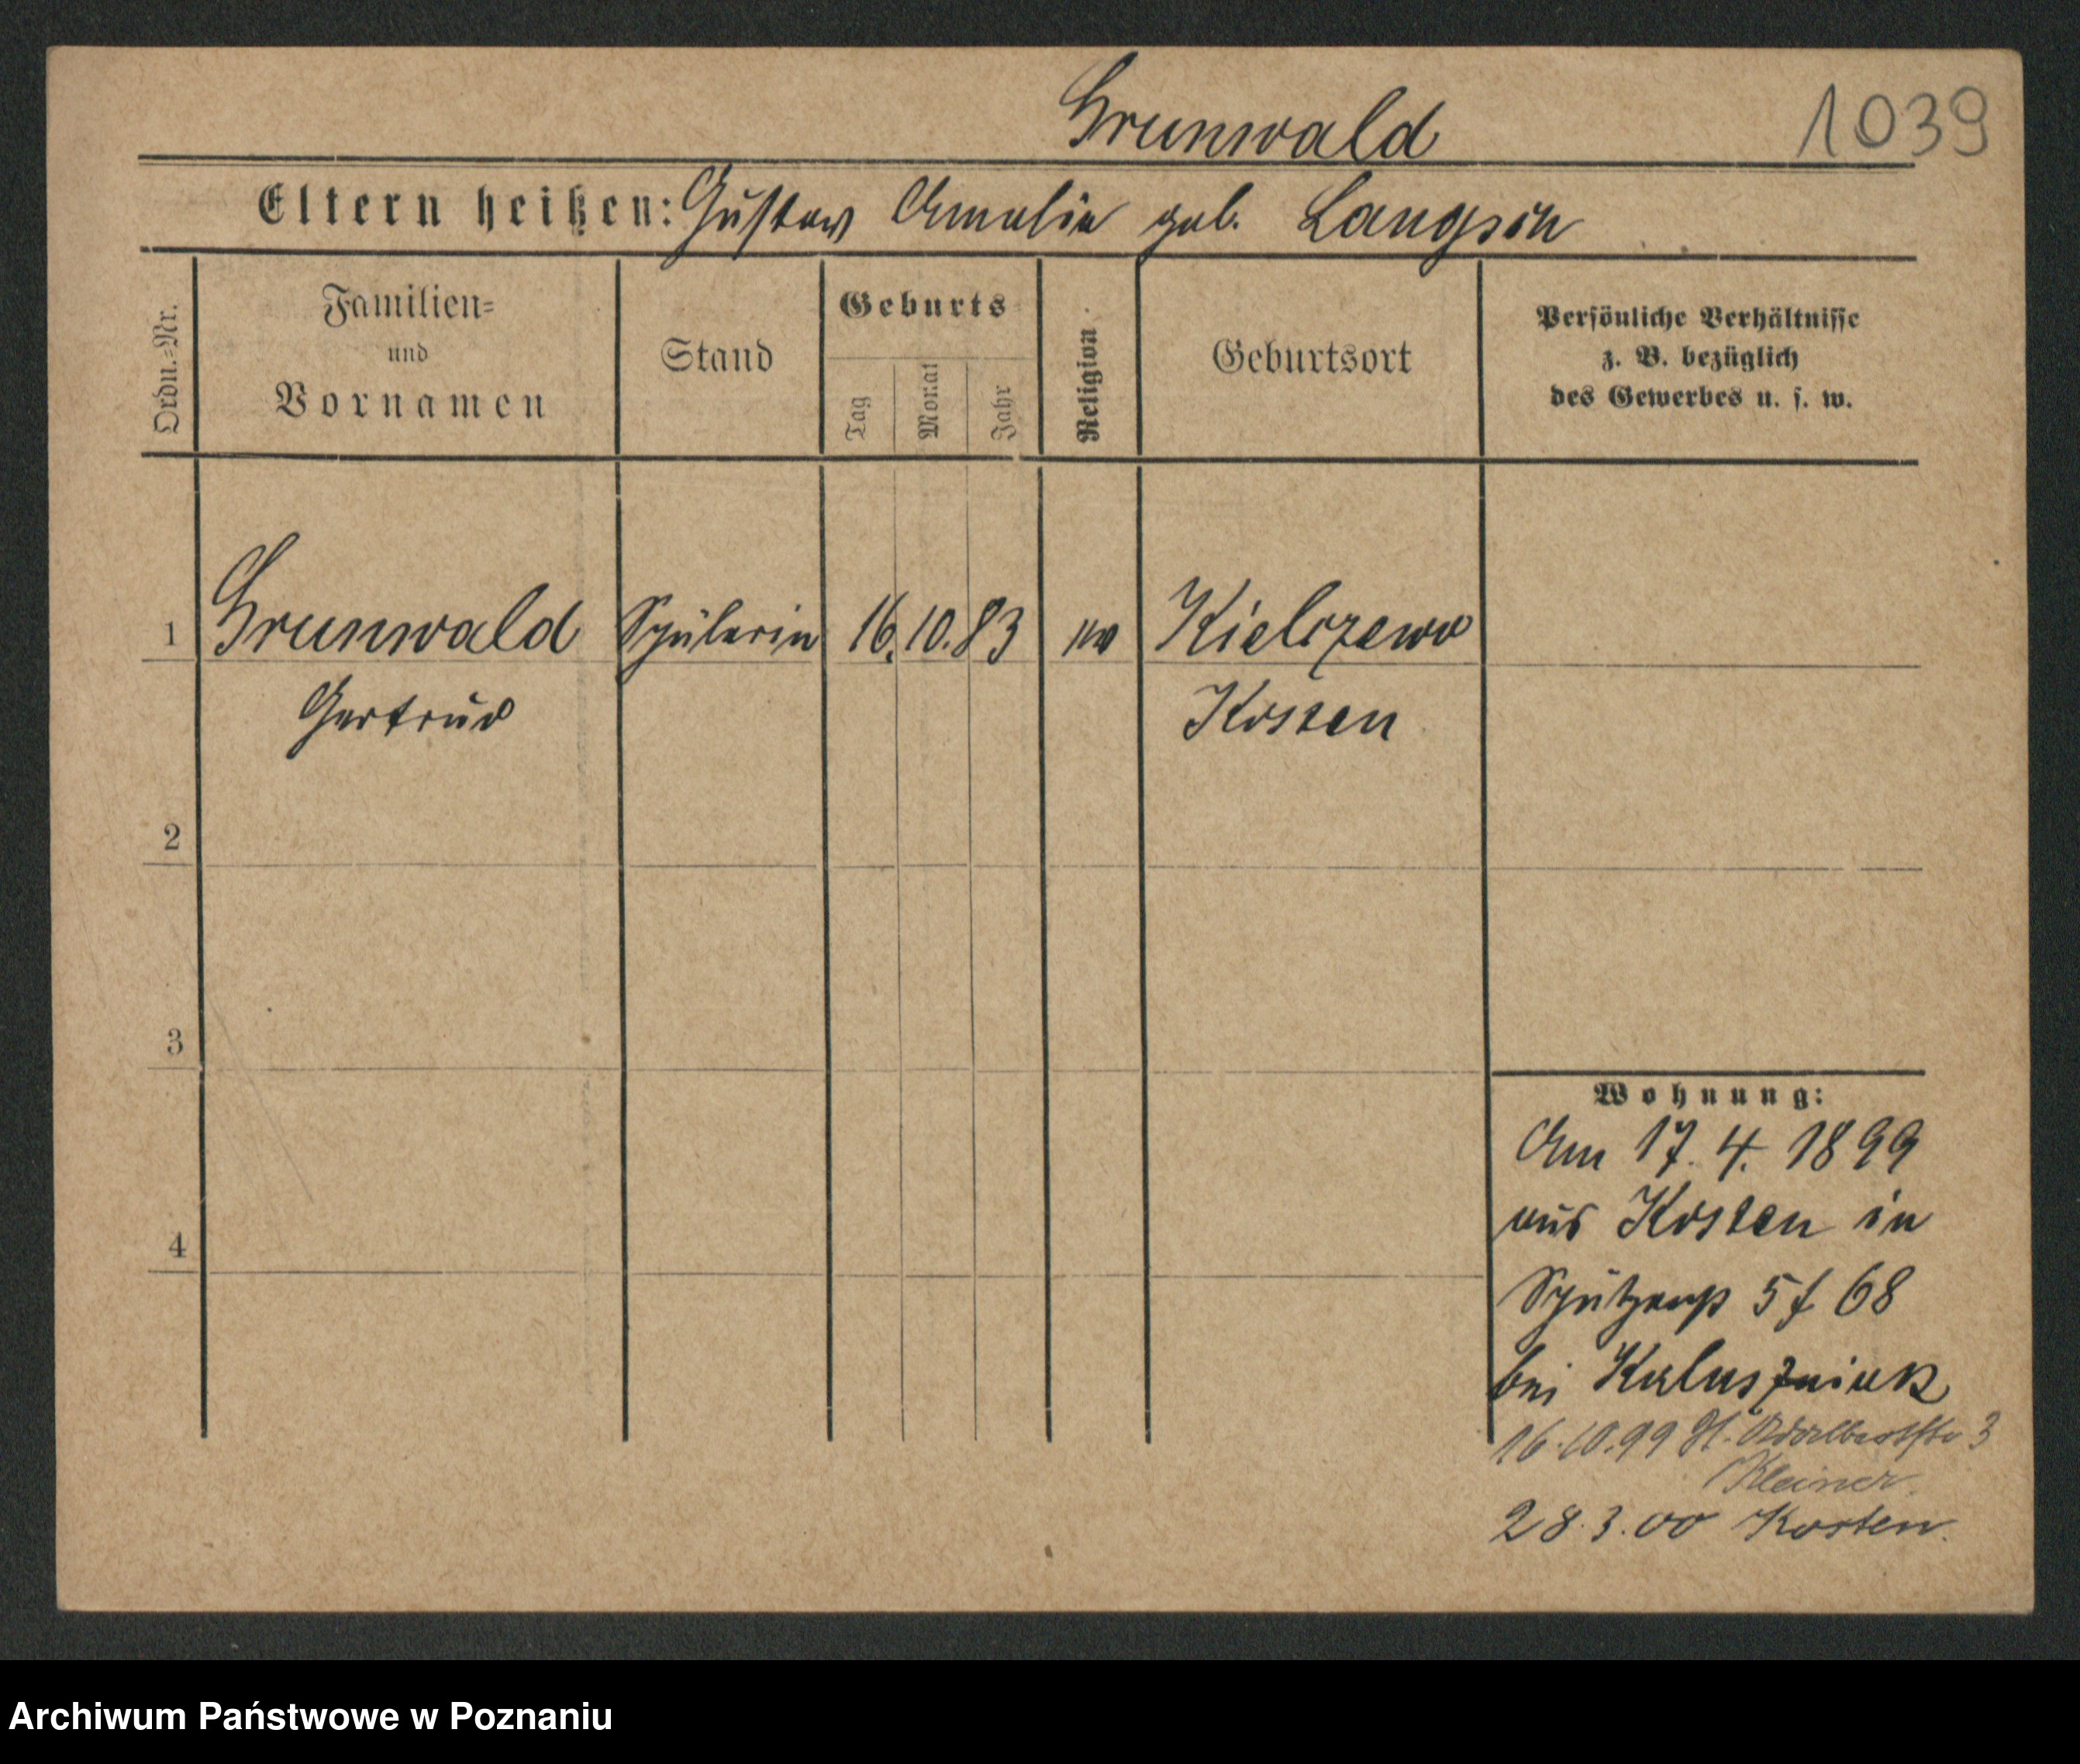 Grunwald
1039
Eltern heißen: Gustav Amalie geb. Langsch
Ordn.=Nr.
Familien=
und
Vornamen
Stand
Geburts
Tag
Monat
Jahr
Religion
Geburtsort
Persönliche Verhältnisse
z. B. bezüglich
des Gewerbes u. s. w.
1 Grunwald Schülerin 16. 10. 83 ev Kielczewo
Gertrud Kosten
2
3
4
Wohnung:
Am 17. 4. 1899
aus Kosten in
Schützenstr 5 f 68
bei Kaluszniak
16.10.99 St. Adalbertstr 3
Kleiner.
28.3.00 Kosten.
Archiwum Państwowe w Poznaniu